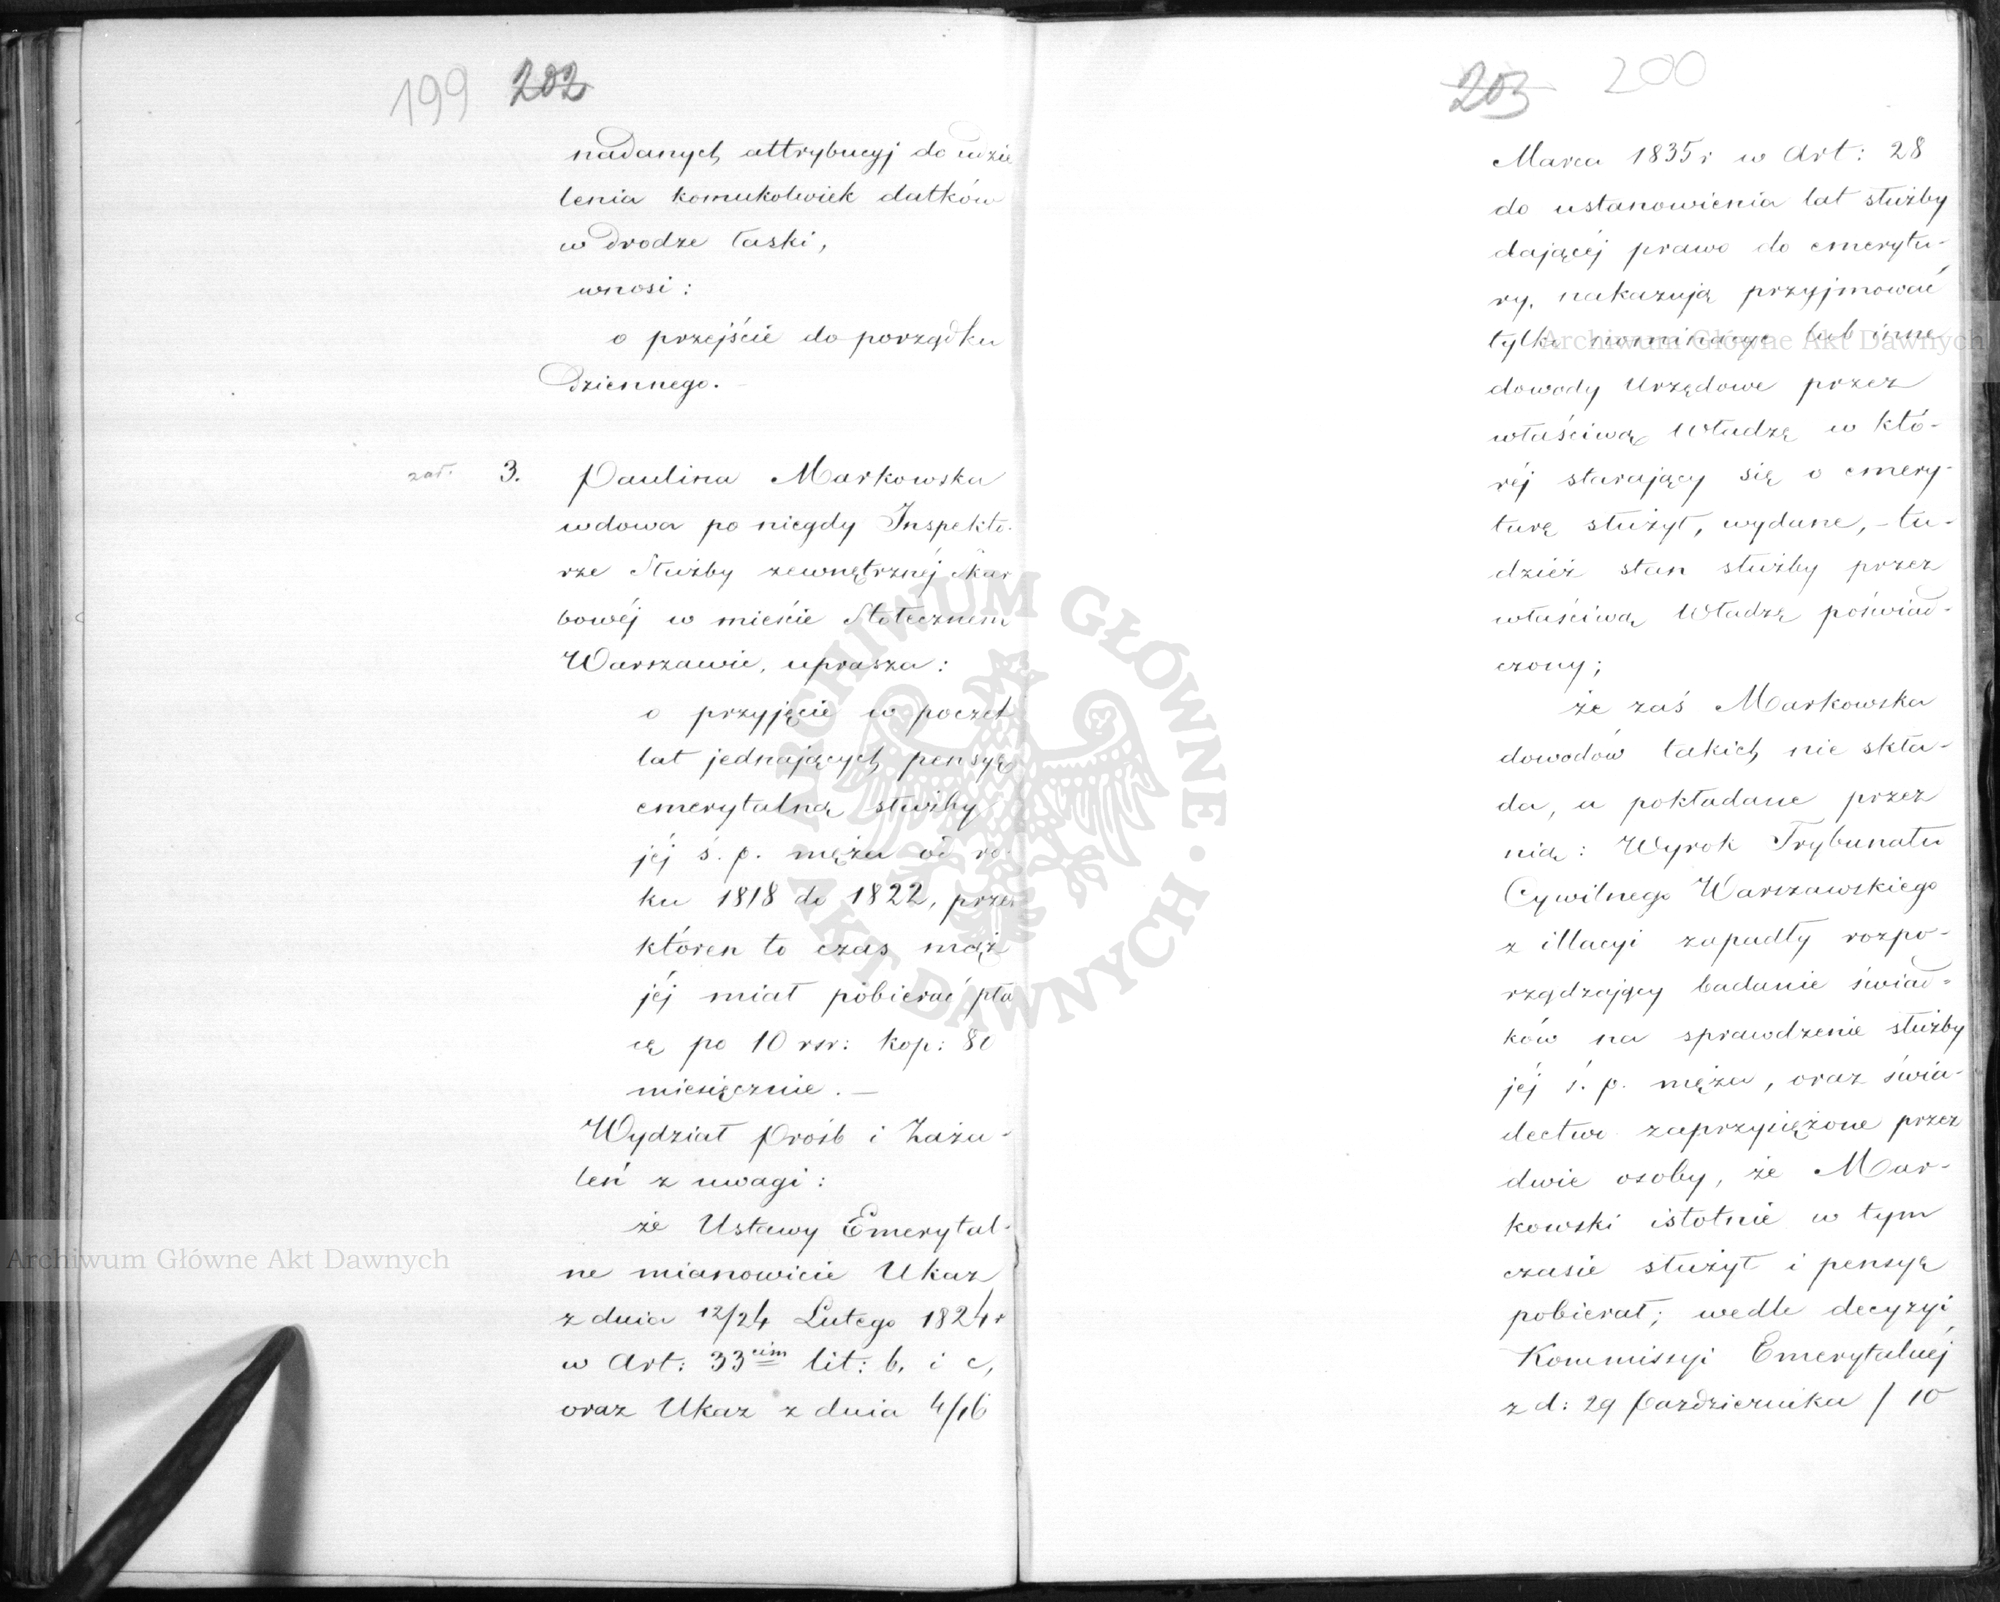 199 202
nadanych attrybucyj do udzie
lenia komukolwiek datków
w drodze łaski,
wnosi:
o przejście do porządku
dziennego. —
zał. 3. Paulina Markowska
wdowa po niegdy Inspekto-
rze Służby zewnętrznéj Skar
bowéj w mieście Stołecznem
Warszawie, uprasza:
o przyjęcie w poczet
lat jednających pensyę
emerytalną służby
jéj ś. p. męża od ro-
ku 1818 do 1822, przez
któren to czas mąż
jéj miał pobierać pła
cę po 10 rsr: kop: 80
miesięcznie. —
Wydział Próśb i Zaża-
leń z uwagi:
że Ustawy Emerytal-
ne mianowicie Ukaz
z dnia 12/24 Lutego 1824 r
w Art: 33cim lit: b, i c,
oraz Ukaz z dnia 4/16
203 200
Marca 1835 r w Art: 28
do ustanowienia lat służby
dającéj prawo do emerytu-
ry, nakazują przyjmować
tylko nominacye lub inne
dowody Urzędowe przez
właściwą Władzę w któ-
réj starający się o emery-
turę służył, wydane, – tu-
dzież stan służby przez
właściwą Władzę poświad-
czony;
że zaś Markowska
dowodów takich nie skła-
da, a pokładane przez
nią: Wyrok Trybunału
Cywilnego Warszawskiego
z illacyi zapadły rozpo-
rządzający badanie świad-
ków na sprawdzenie służby
jéj ś. p. męża, oraz świa-
dectwo zaprzysiężone przez
dwie osoby, że Mar-
kowski istotnie w tym
czasie służył i pensyę
pobierał; wedle decyzyi
Kommissyi Emerytalnéj
z d: 29 Października / 10
Archiwum Główne Akt Dawnych
Archiwum Główne Akt Dawnych
ARCHIWUM GŁÓWNE • AKT DAWNYCH •